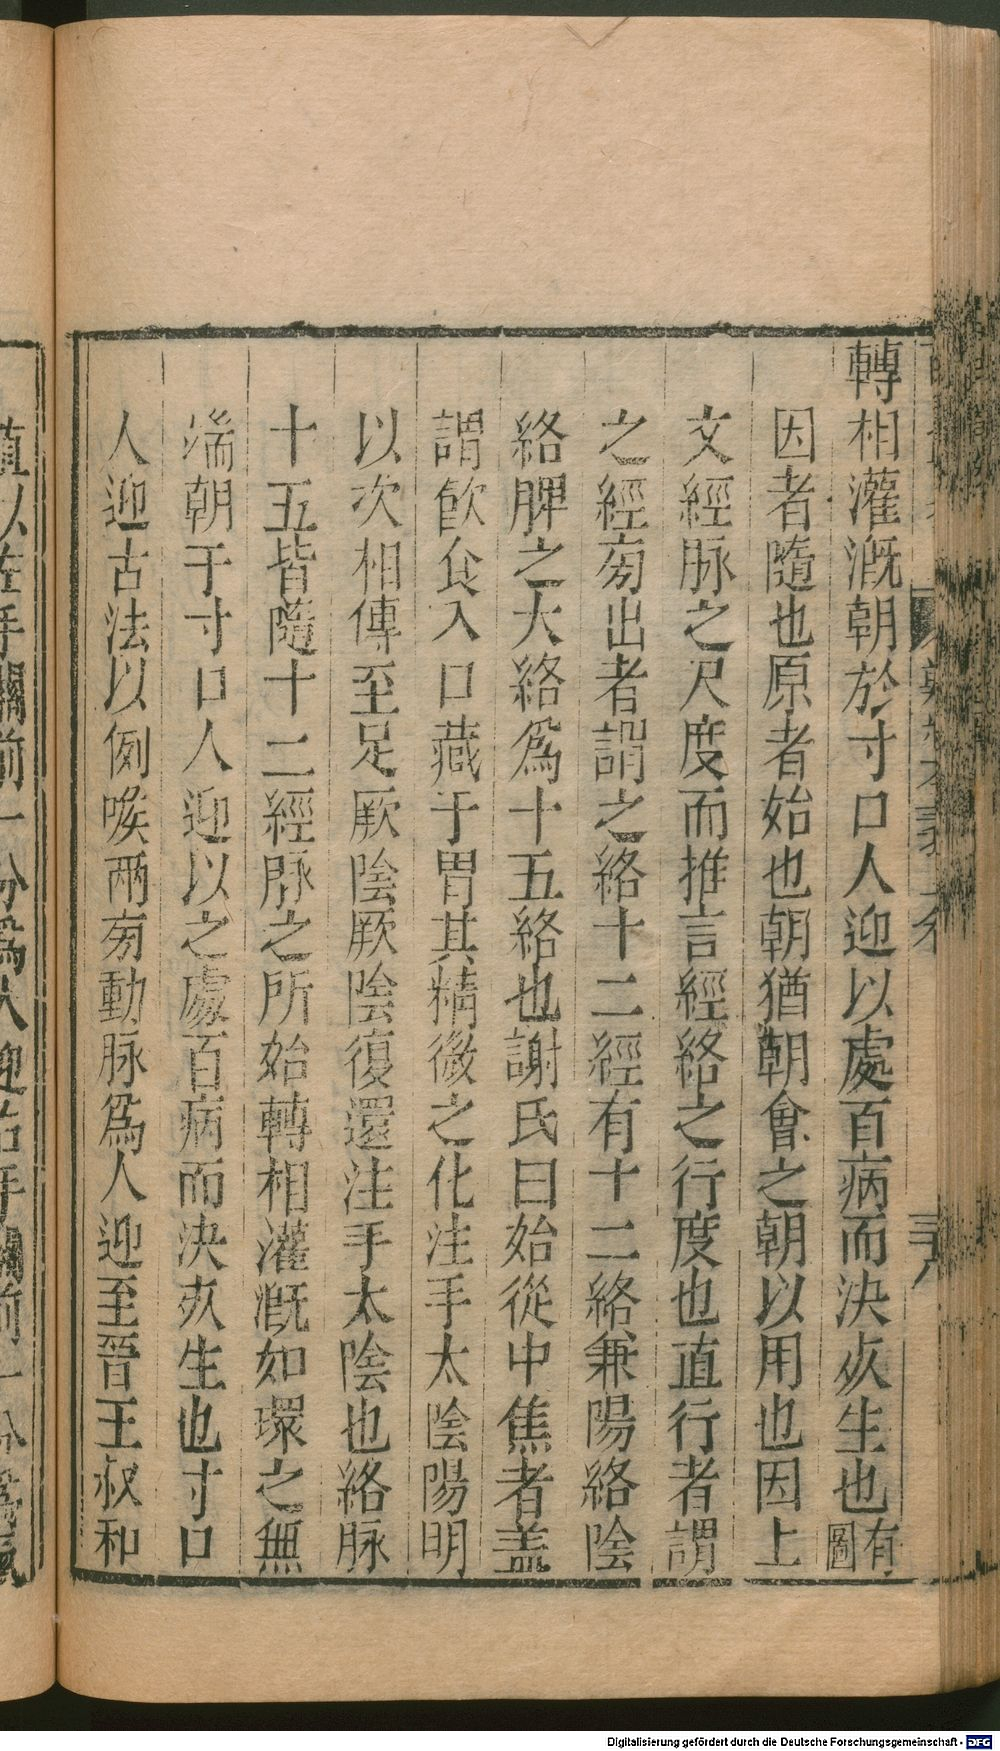 轉相灌漑朝於寸口人迎以處百病而決㱙生也有圖
因者隨也原者始也朝猶朝會之朝以用也因上
文經脉之尺度而推言經絡之行度也直行者謂
之經㫄出者謂之絡十二經有十二絡兼陽絡陰
絡脾之大絡爲十五絡也謝氏曰始從中焦者盖
謂飮食入口藏于胃其精微之化注手太陰陽明
以次相傳至足厥陰厥陰復還注手太陰也絡脉
十五皆隨十二經脉之所始轉相灌漑如環之無
端朝于寸口人迎以之處百病而決㱙生也寸口
人迎古法以俠喉兩㫄動脉爲人迎至晉王叔和
直以左手關前一分爲人迎右手關前一分爲氣
Digitalisierung gefördert durch die Deutsche Forschungsgemeinschaft - DFG